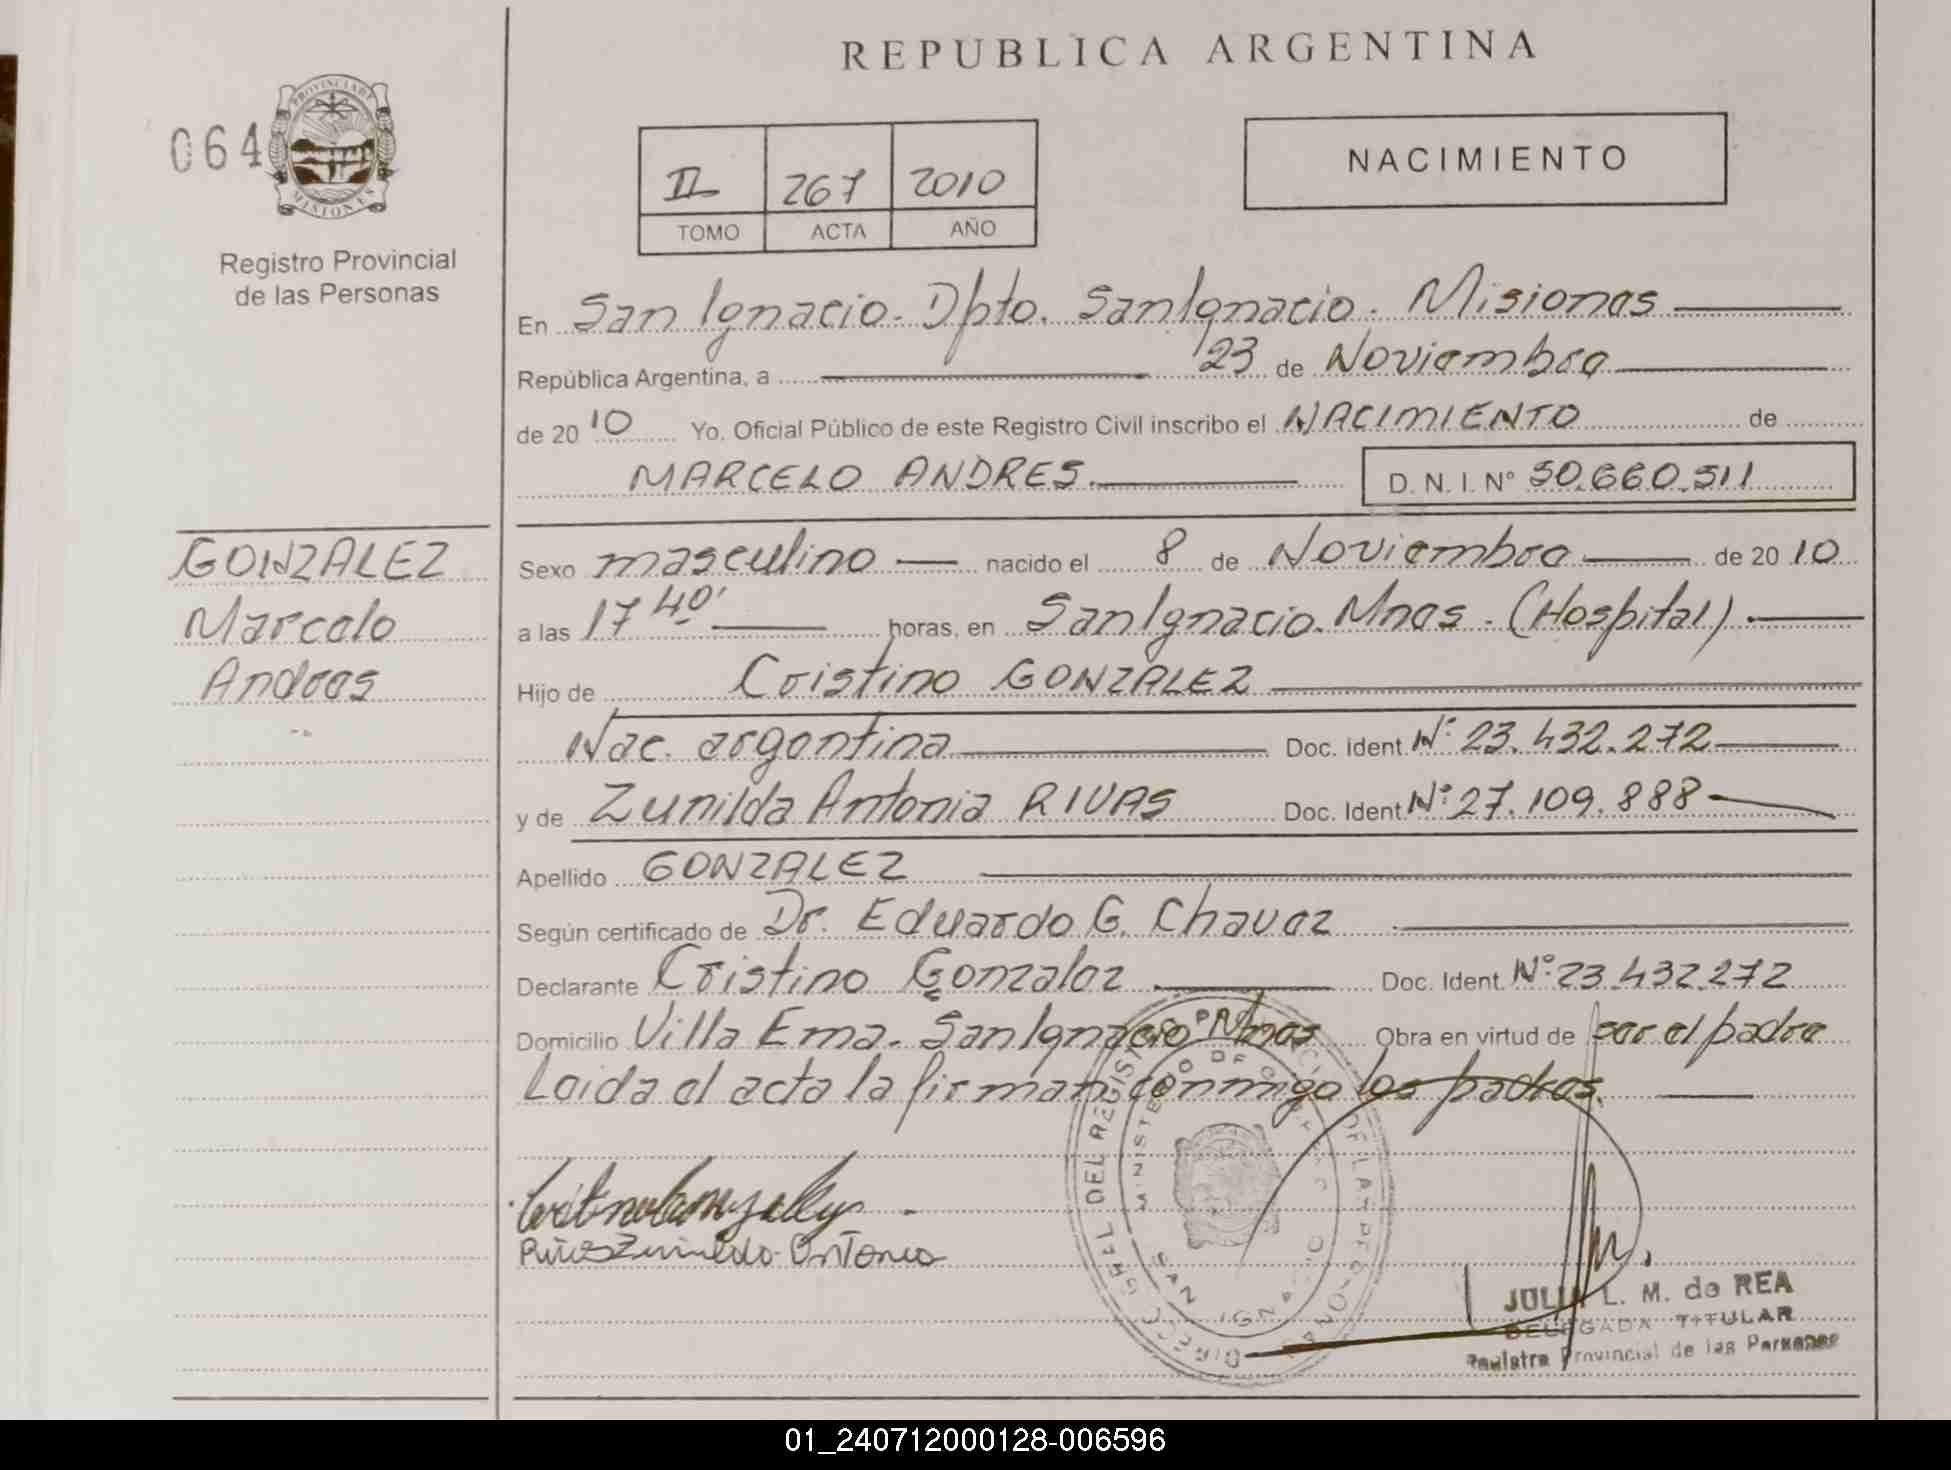 REPUBLICA ARGENTINA
064
PROVINCIA DE MISIONES
Registro Provincial
de las Personas
II 267 2010
TOMO ACTA AÑO
NACIMIENTO
En San Ignacio. Dpto. San Ignacio. Misiones
República Argentina, a 23 de Noviembre
de 2010 Yo, Oficial Público de este Registro Civil inscribo el NACIMIENTO de
MARCELO ANDRES. D. N. I. N° 50.660.511
GONZALEZ
Marcelo
Andres
Sexo masculino nacido el 8 de Noviembre de 2010
a las 17 40' horas, en San Ignacio. Mnes. (Hospital).
Hijo de Cristino GONZALEZ
Nac. argentina Doc. Ident. N°: 23.432.272
y de Zunilda Antonia RIVAS Doc. Ident. N°: 27.109.888
Apellido GONZALEZ
Según certificado de Dr. Eduardo G. Chavez
Declarante Cristino Gonzalez Doc. Ident. N°: 23.432.272
Domicilio Villa Ema. San Ignacio Mnes Obra en virtud de ser el padre
Leida el acta la firman conmigo los padres.
DIRECC. GRAL. DEL REGISTRO PROVINCIAL DE LAS PERSONAS
MINISTERIO DE GOBIERNO
SAN IGNACIO
JULIA L. M. de REA
DELEGADA TITULAR
Registro Provincial de las Personas
01_240712000128-006596